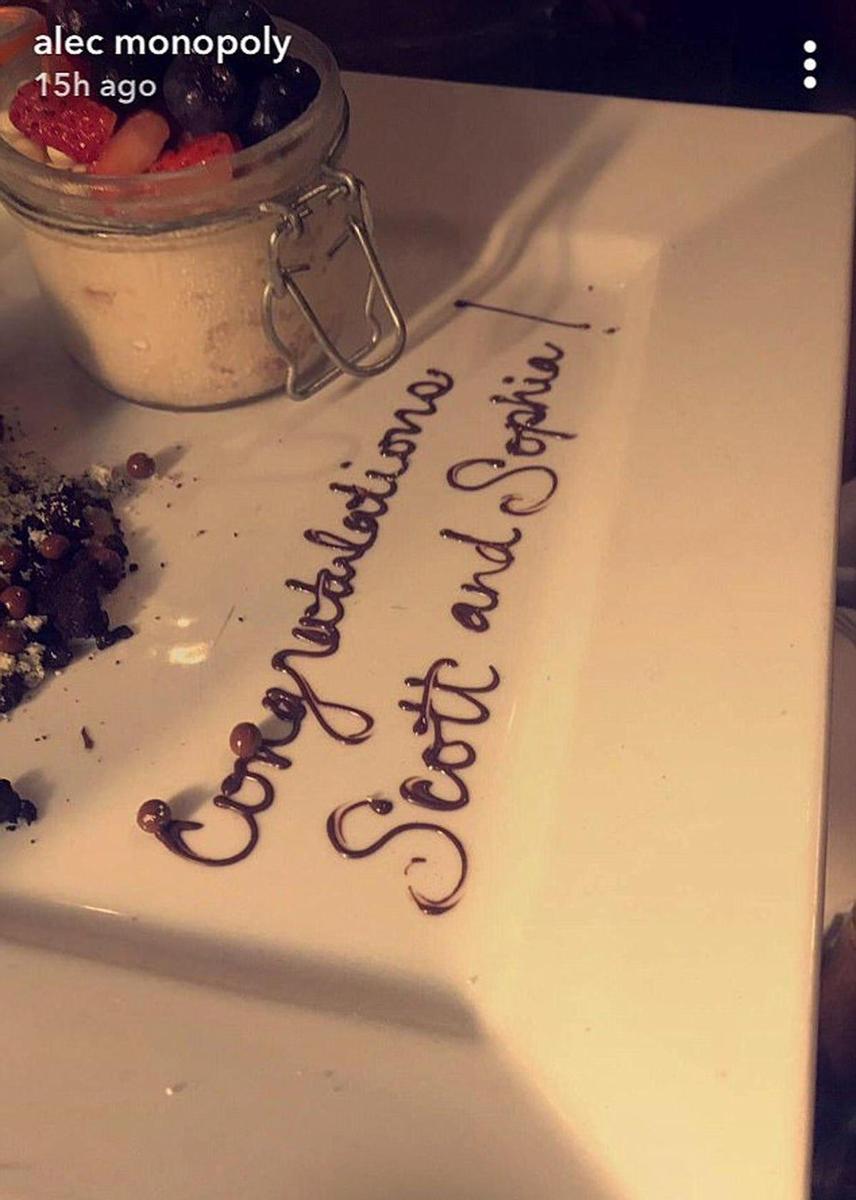 alec monopoly
15h ago
Congratulations
Scott and Sophia!